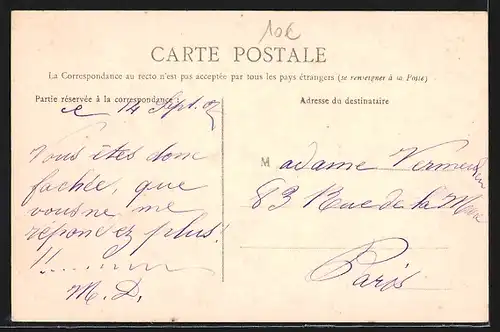 10€
CARTE POSTALE
La Correspondance au recto n'est pas acceptée par tous les pays étrangers (se renseigner à la Poste)
Partie réservée à la correspondance :
Adresse du destinataire
Le 14 Sept. 07
Vous êtes donc
fachée, que
vous ne me
repondez plus!
!!
M. D.
Madame Vermeulen
83 Rue de la Mare
Paris